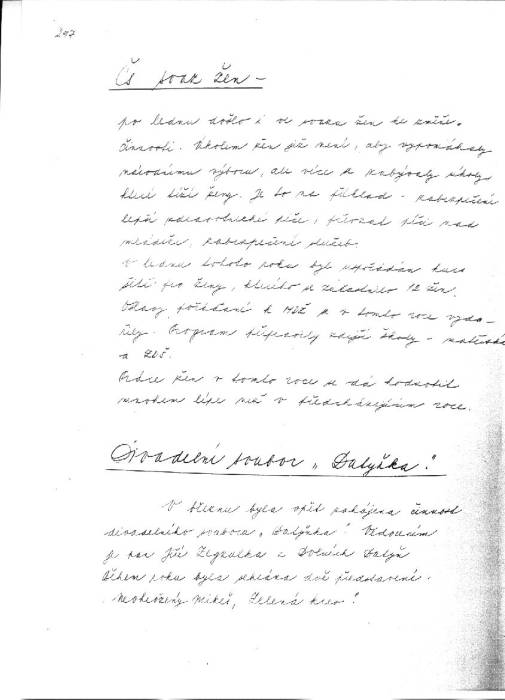 247
Čs svaz žen -
po lednu došlo i ve svazu žen ke změně
činnosti. Úkolem žen již není, aby vypomáhaly
národnímu výboru, ale více se zabývaly úkoly
které tíží ženy. Je to na příklad - zabezpečení
lepší zdravotnické péče, převzal péči nad
mládeže, zabezpečení služeb.
V lednu tohoto roku byl uspořádán kurs
šití pro ženy, kterého se zúčastnilo 12 žen.
Oslavy pořádání k MDŽ se v tomto roce vyda-
řily. Program připravily zdejší školy - mateřská
a ZDŠ.
Práce žen v tomto roce se dá hodnotit
mnohem lépe než v předcházejícím roce.
Divadelní soubor "Dalyňka".
V březnu byla opět zahájena činnost
divadelního souboru "Dalyňka". Vedoucím
je pan Jiří z Dolních
Během roku byla sehrána dvě představení.
Neohrožený Mikeš, Zelená krev".